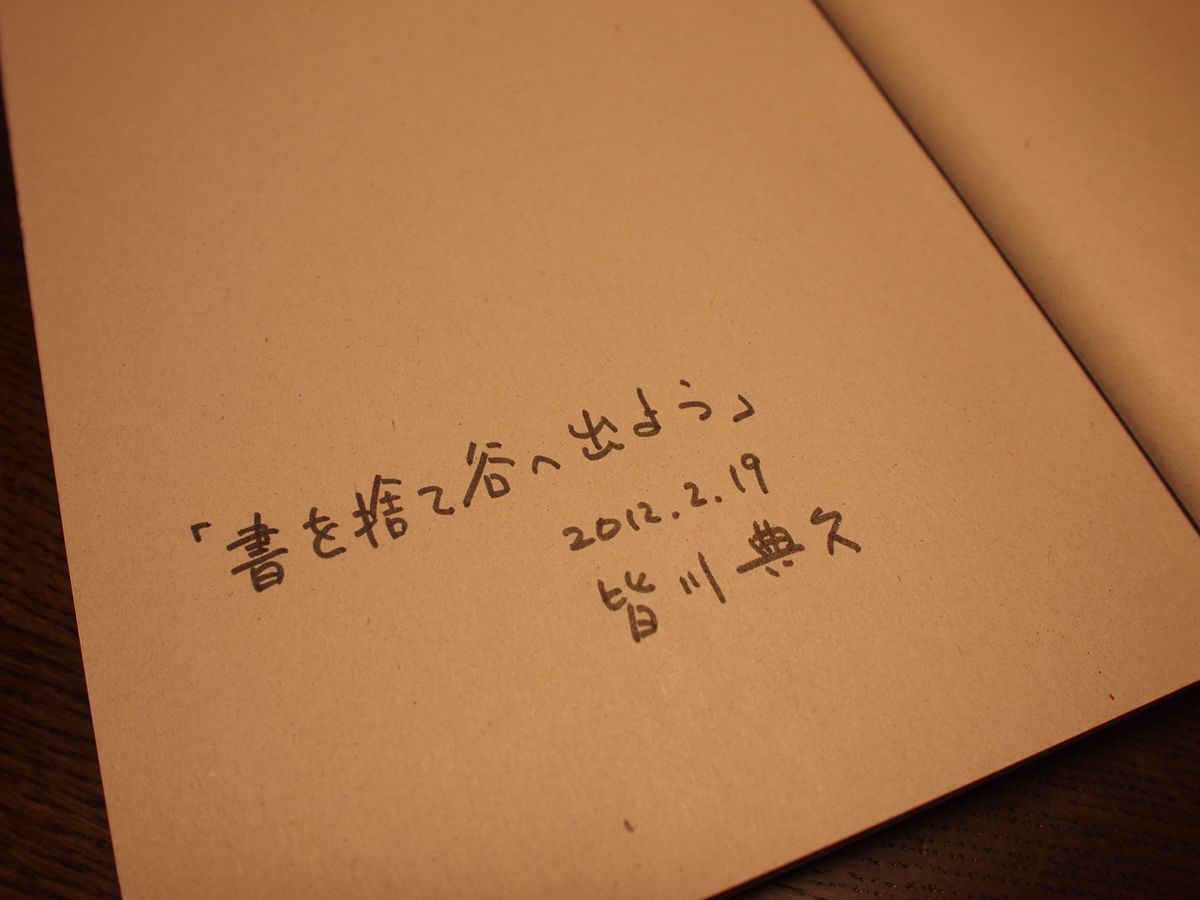 「書を捨て谷へ出よう」
2012.2.19
皆川典久